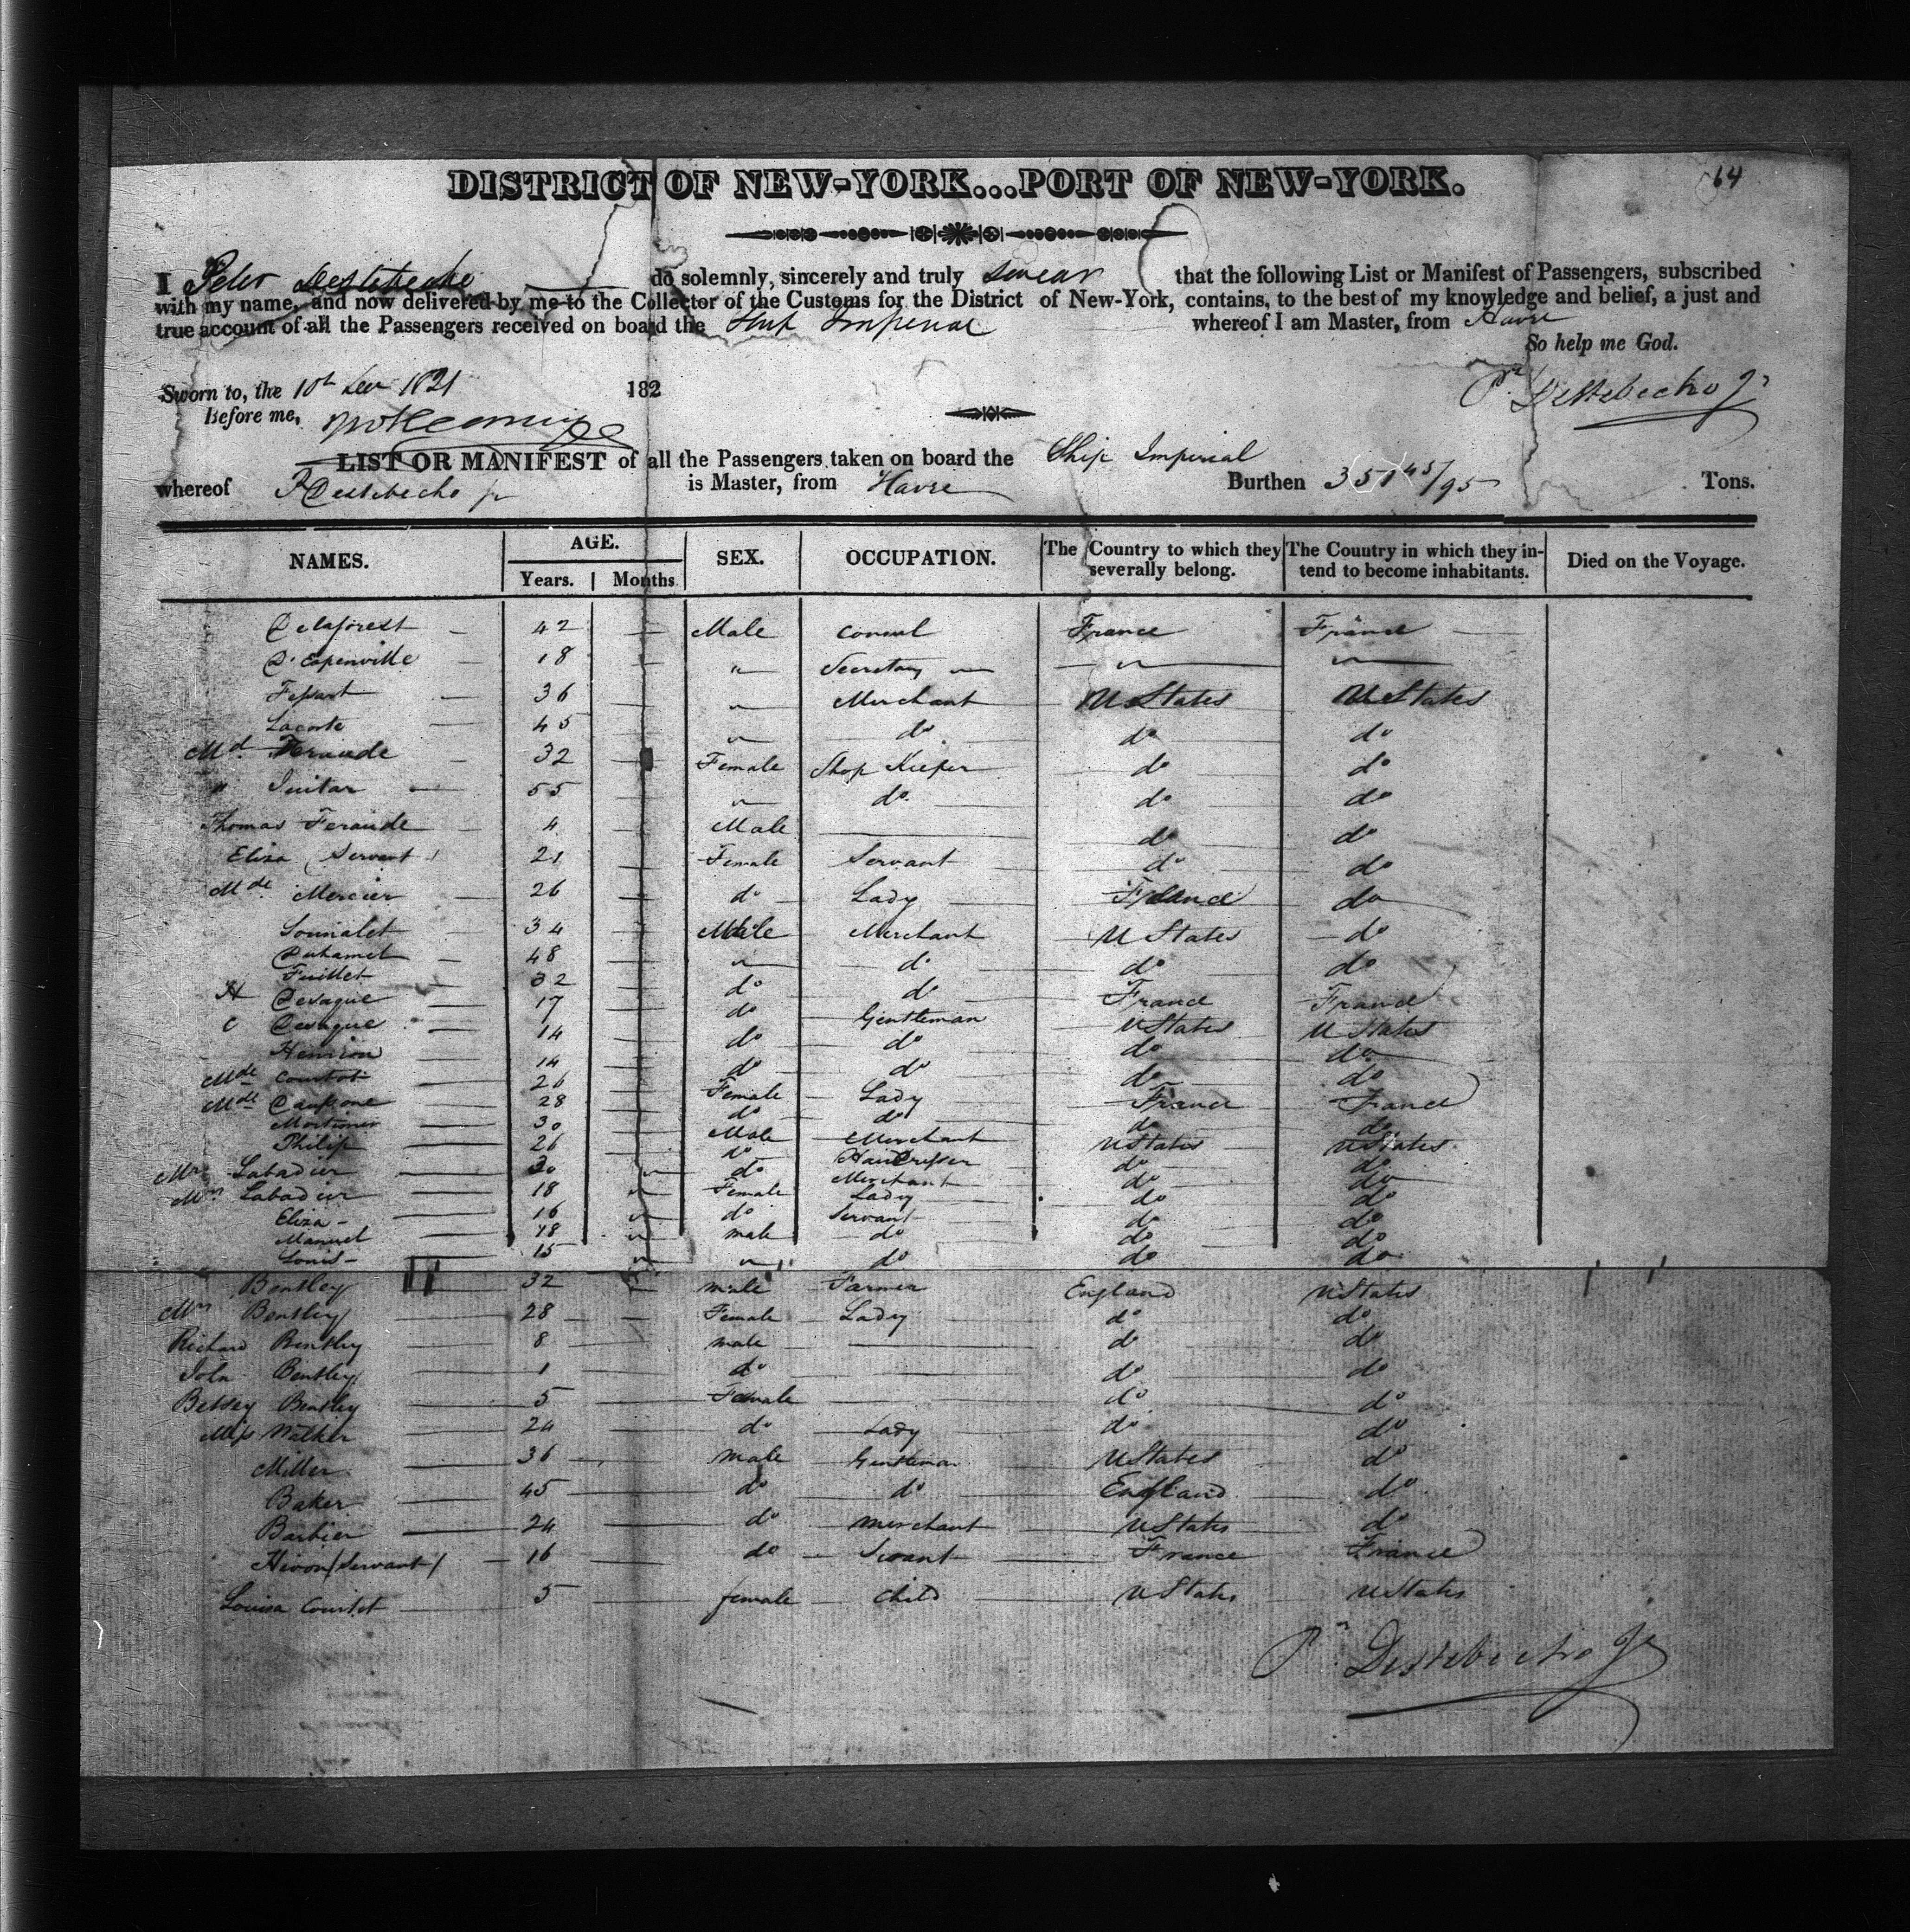 64
DISTRICT OF NEW-YORK...PORT OF NEW-YORK.
I Peter Destebecho do solemnly, sincerely and truly swear that the following List or Manifest of Passengers, subscribed
with my name, and now delivered by me to the Collector of the Customs for the District of New-York, contains, to the best of my knowledge and belief, a just and
true account of all the Passengers received on board the Ship Imperial whereof I am Master, from Havre
So help me God.
Sworn to, the 10th Dec 1821 182
Before me,
Pr. Destebecho Jr
LIST OR MANIFEST of all the Passengers taken on board the Ship Imperial
whereof P Destebecho jr is Master, from Havre Burthen 351 45/95 Tons.
NAMES. AGE. SEX. OCCUPATION. The Country to which they severally belong. The Country in which they intend to become inhabitants. Died on the Voyage.
Years. Months.
Delaforest 42 Male Consul France France
D'Espenville 18 " Secretary " "
Fessart 36 " Merchant U States U States
Lacoste 45 " do do do
Md. Feraude 32 Female Shop Keeper do do
" Guitar 55 " do do do
Thomas Feraude 4 Male do do
Eliza (Servant) 21 Female Servant do do
Mde Mercier 26 do Lady France do
34 Male Merchant U States do
Duhamel 48 " do do do
Fuillet 32 do do France France
H Desaque 17 do Gentleman U States U States
C Desaque 14 do do do do
14 do do do do
Mde Courtot 26 Female Lady France France
Mde 28 do do do do
Mortimer 30 Male Merchant U States U States
Philip 26 do Hair Dresser do do
Mr Labadier 30 " do Merchant do do
Mrs Labadier 18 " Female Lady do do
Eliza 16 " do Servant do do
Manuel 18 " male do do do
Louis 15 " " do do do
Bentley 32 male Farmer England U States
Mrs Bentley 28 Female Lady do do
Richard Bentley 8 male do do
John Bentley 1 do do do
Betsey Bentley 5 Female do do
Miss Walker 24 do Lady do do
Miller 36 male Gentleman U States do
Baker 45 do do England do
Barbier 24 do merchant U States do
Hivon (Servant) 16 do Servant France France
Louisa Courtot 5 female Child U States U States
Pr. Destebecho Jr